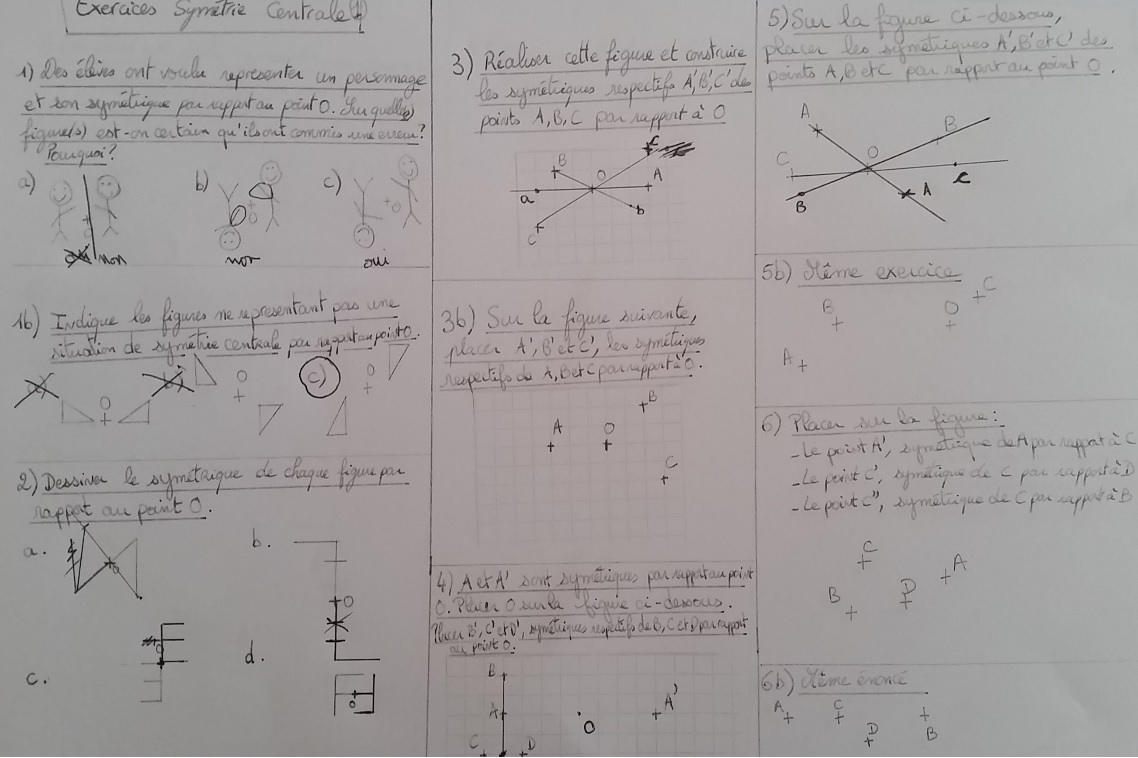 Exercices Symétrie Centrale (1)
1) Des élèves ont voulu représenter un personnage
et son symétrique par rapport au point O. Sur quelle(s)
figure(s) est-on certain qu'ils ont commis une erreur?
Pourquoi?
a) b) c)
non nor oui
1b) Indique les figures ne représentant pas une
situation de symétrie centrale par rapport au point O.
a) b) c)
O O O
2) Dessiner le symétrique de chaque figure par
rapport au point O.
a. b.
O O
c. d.
3) Réaliser cette figure et construire
les symétriques respectifs A', B', C' des
points A, B, C par rapport à O
B O A
a b
C
3b) Sur la figure suivante,
placer A', B' et C', les symétriques
respectifs de A, B et C par rapport à O.
B
A O
C
4) A et A' sont symétriques par rapport au point
O. Placer O sur la figure ci-dessous.
Placer B', C' et D', symétriques respectifs de B, C et D par rapport
au point O.
B
A O A'
C D
5) Sur la figure ci-dessous,
placer les symétriques A', B' et C' des
points A, B et C par rapport au point O.
A B
C O
B A c
5b) Même exercice
B O C
A
6) Placer sur la figure:
- Le point A', symétrique de A par rapport à C
- Le point C', symétrique de C par rapport à D
- Le point C'', symétrique de C par rapport à B
C A
B D
6b) Même énoncé
A C
D B